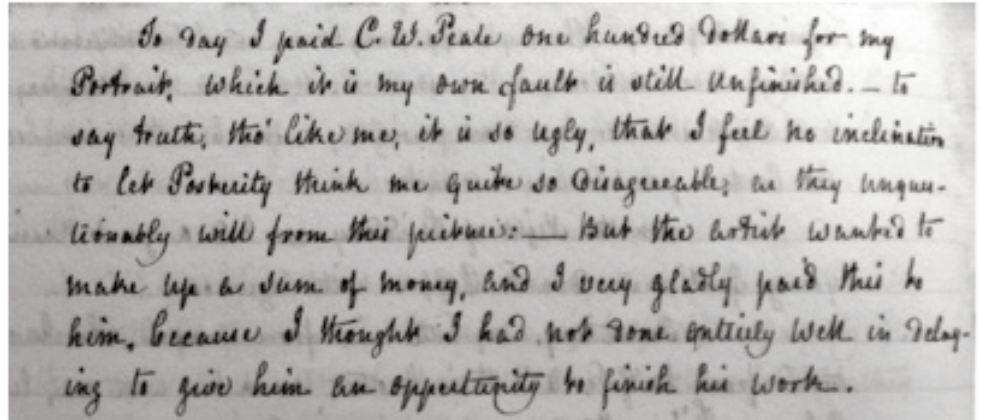 To day I paid C. W. Peale one hundred dollars for my
Portrait, which it is my own fault is still unfinished. — to
say truth, tho' like me, it is so ugly, that I feel no inclination
to let Posterity think me quite so disagreeable, as they unques-
tionably will from this picture: — But the artist wanted to
make up a sum of money, and I very gladly paid this to
him, because I thought I had not done entirely well in delay-
ing to give him an opportunity to finish his work.